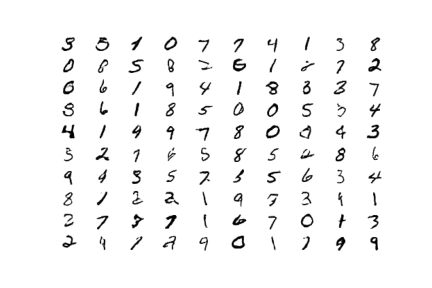 3 5 1 0 7 7 4 1 3 8
0 8 5 8 2 6 1 2 7 2
6 6 1 9 4 1 8 3 3 7
3 6 1 8 5 0 0 5 3 4
4 1 9 9 7 8 0 9 4 3
3 2 7 6 5 8 5 2 8 6
9 4 3 5 7 3 5 6 3 4
8 1 2 2 1 9 3 3 4 1
2 7 8 7 1 6 7 0 1 3
2 4 7 2 9 0 1 7 9 9